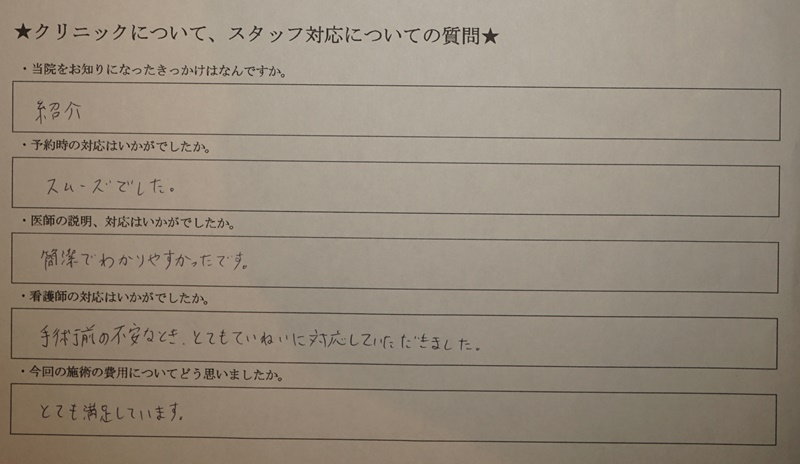 ★クリニックについて、スタッフ対応についての質問★
・当院をお知りになったきっかけはなんですか。
紹介
・予約時の対応はいかがでしたか。
スムーズでした。
・医師の説明、対応はいかがでしたか。
簡潔でわかりやすかったです。
・看護師の対応はいかがでしたか。
手術前の不安なとき、とてもていねいに対応していただきました。
・今回の施術の費用についてどう思いましたか。
とても満足しています。